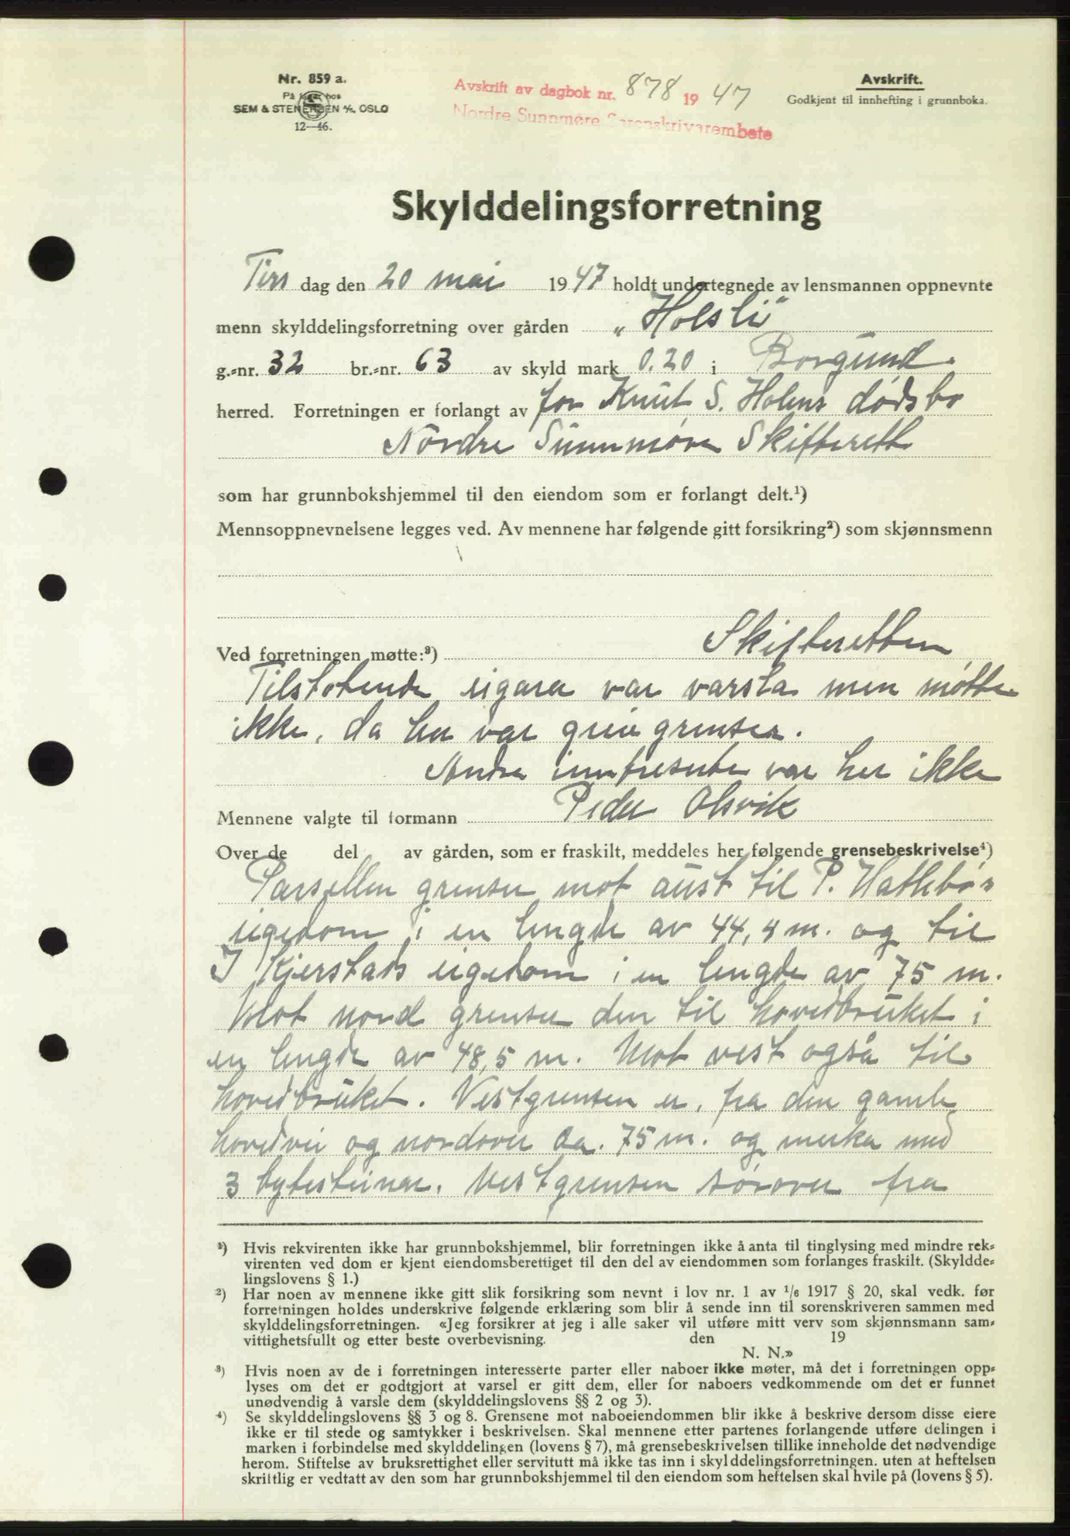 Nr. 859 a.
På lager hos
SEM & STENERSEN A/S, OSLO
12—46.
Avskrift av dagbok nr. 878 1947
Nordre Sunnmøre Sorenskrivarembete
Avskrift.
Godkjent til innhefting i grunnboka.
Skylddelingsforretning
Tirs dag den 20 mai 1947 holdt undertegnede av lensmannen oppnevnte
menn skylddelingsforretning over gården „Holsli"
g.-nr. 32 br.-nr. 63 av skyld mark 0.20 i Borgund
herred. Forretningen er forlangt av for Knut S. Holens dødsbo
Nordre Sunnmøre Skifterett
som har grunnbokshjemmel til den eiendom som er forlangt delt.¹)
Mennsoppnevnelsene legges ved. Av mennene har følgende gitt forsikring²) som skjønnsmenn
Ved forretningen møtte:³) Skifteretten
Tilstøtende eigara var varsla men møtte
ikke, da her var greie grenser.
Andre interesserte var her ikke
Mennene valgte til formann Peder Olsvik
Over de del av gården, som er fraskilt, meddeles her følgende grensebeskrivelse⁴)
Parsellen grenser mot aust til P. Hatlebø's
eigedom i en lengde av 44,4 m. og til
J Kjerstads eigedom i en lengde av 75 m.
Mot nord grenser den til hovedbruket i
en lengde av 48,5 m. Mot vest også til
hovedbruket. Vestgrensen er, fra den gamle
hovedvei og nordover ca. 75 m. og merka med
3 bytesteinar. Vestgrensen sørover fra
¹) Hvis rekvirenten ikke har grunnbokshjemmel, blir forretningen ikke å anta til tinglysing med mindre rek-
virenten ved dom er kjent eiendomsberettiget til den del av eiendommen som forlanges fraskilt. (Skyldde-
lingslovens § 1.)
²) Har noen av mennene ikke gitt slik forsikring som nevnt i lov nr. 1 av 1/6 1917 § 20, skal vedk. før
forretningen holdes underskrive følgende erklæring som blir å sende inn til sorenskriveren sammen med
skylddelingsforretningen. «Jeg forsikrer at jeg i alle saker vil utføre mitt verv som skjønnsmann sam-
vittighetsfullt og etter beste overbevisning. den 19
N. N.»
³) Hvis noen av de i forretningen interesserte parter eller naboer ikke møter, må det i forretningen opp-
lyses om det er godtgjort at varsel er gitt dem, eller for naboers vedkommende om det er funnet
unødvendig å varsle dem (skylddelingslovens §§ 2 og 3).
⁴) Se skylddelingslovens §§ 3 og 8. Grensene mot naboeiendommen blir ikke å beskrive dersom disse eiere
ikke er til stede og samtykker i beskrivelsen. Skal mennene etter partenes forlangende utføre delingen i
marken i forbindelse med skylddelingen (lovens § 7), må grensebeskrivelsen tillike inneholde det nødvendige
herom. Stiftelse av bruksrettighet eller servitutt må ikke tas inn i skylddelingsforretningen. uten at heftelsen
skriftlig er vedtatt av den som har grunnbokshjemmel til den eiendom som heftelsen skal hvile på (lovens § 5).